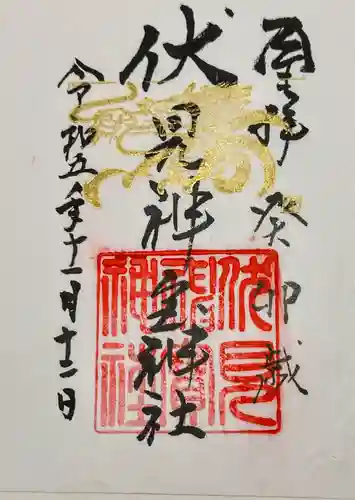 奉拝 癸卯歳
伏見神宝神社
令和五年十一月十二日
伏見
神寶
神社